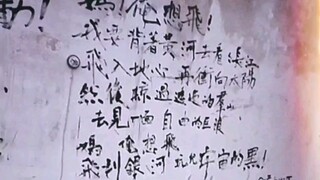 動!
媽!他想飛!
我要背著黃河去看長江
飛入地心 再衝向太陽
然後掠過遠遠的群山
去見一面 自由的巨浪
媽 他想飛
飛到銀河 宇宙的黑!